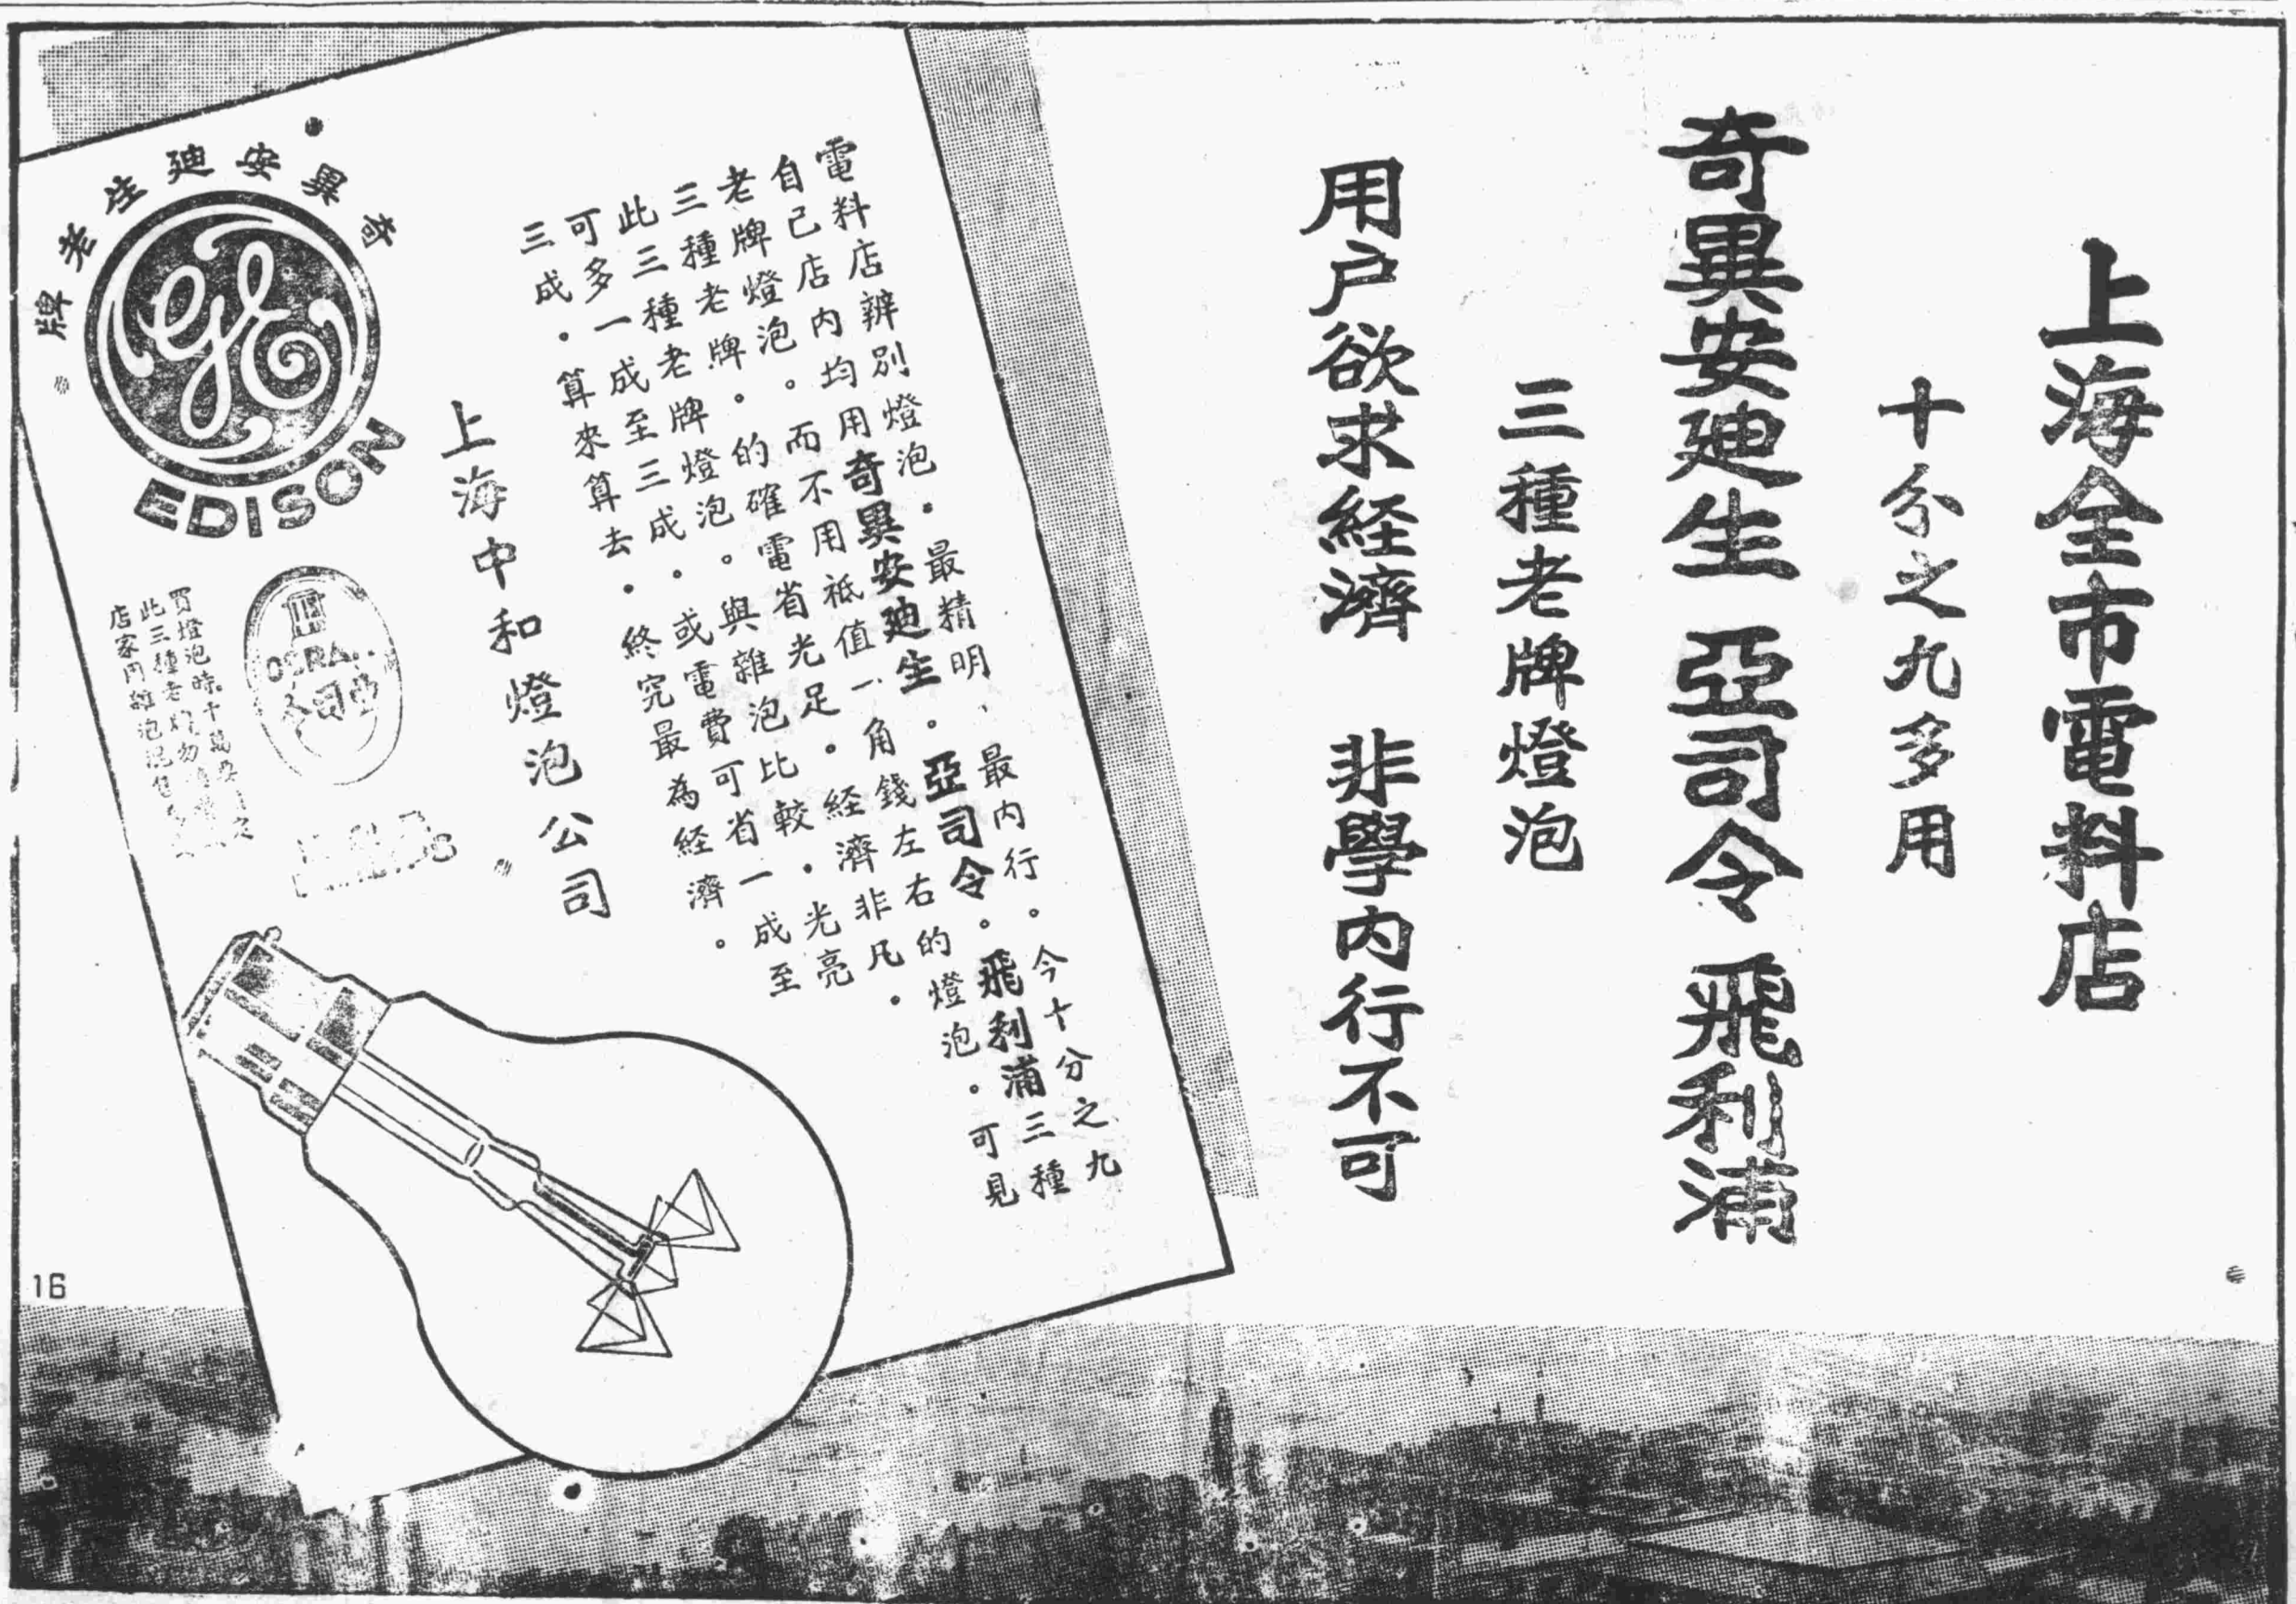 上海全市電料店
十分之九多用
奇異安廸生 亞司令 飛利浦
三種老牌燈泡
用户欲求経濟 非學内行不可
電料店辨別燈泡．最精明、最内行。今十分之九
自己店内均用奇異安廸生．亞司令。飛利浦三種
老牌燈泡。而不用祗值一角錢左右的燈泡．可見
三種老牌．的確電省光足．経濟非凡．
此三種老牌燈泡。與雜泡比較．光亮
可多一成至三成．或電費可省一成至
三成．算來算去．終究最為経濟。
上海中和燈泡公司
奇異安廸生老牌
EDISON
亞司令
買燈泡時千萬
此三種老
店家用雜泡混售
16